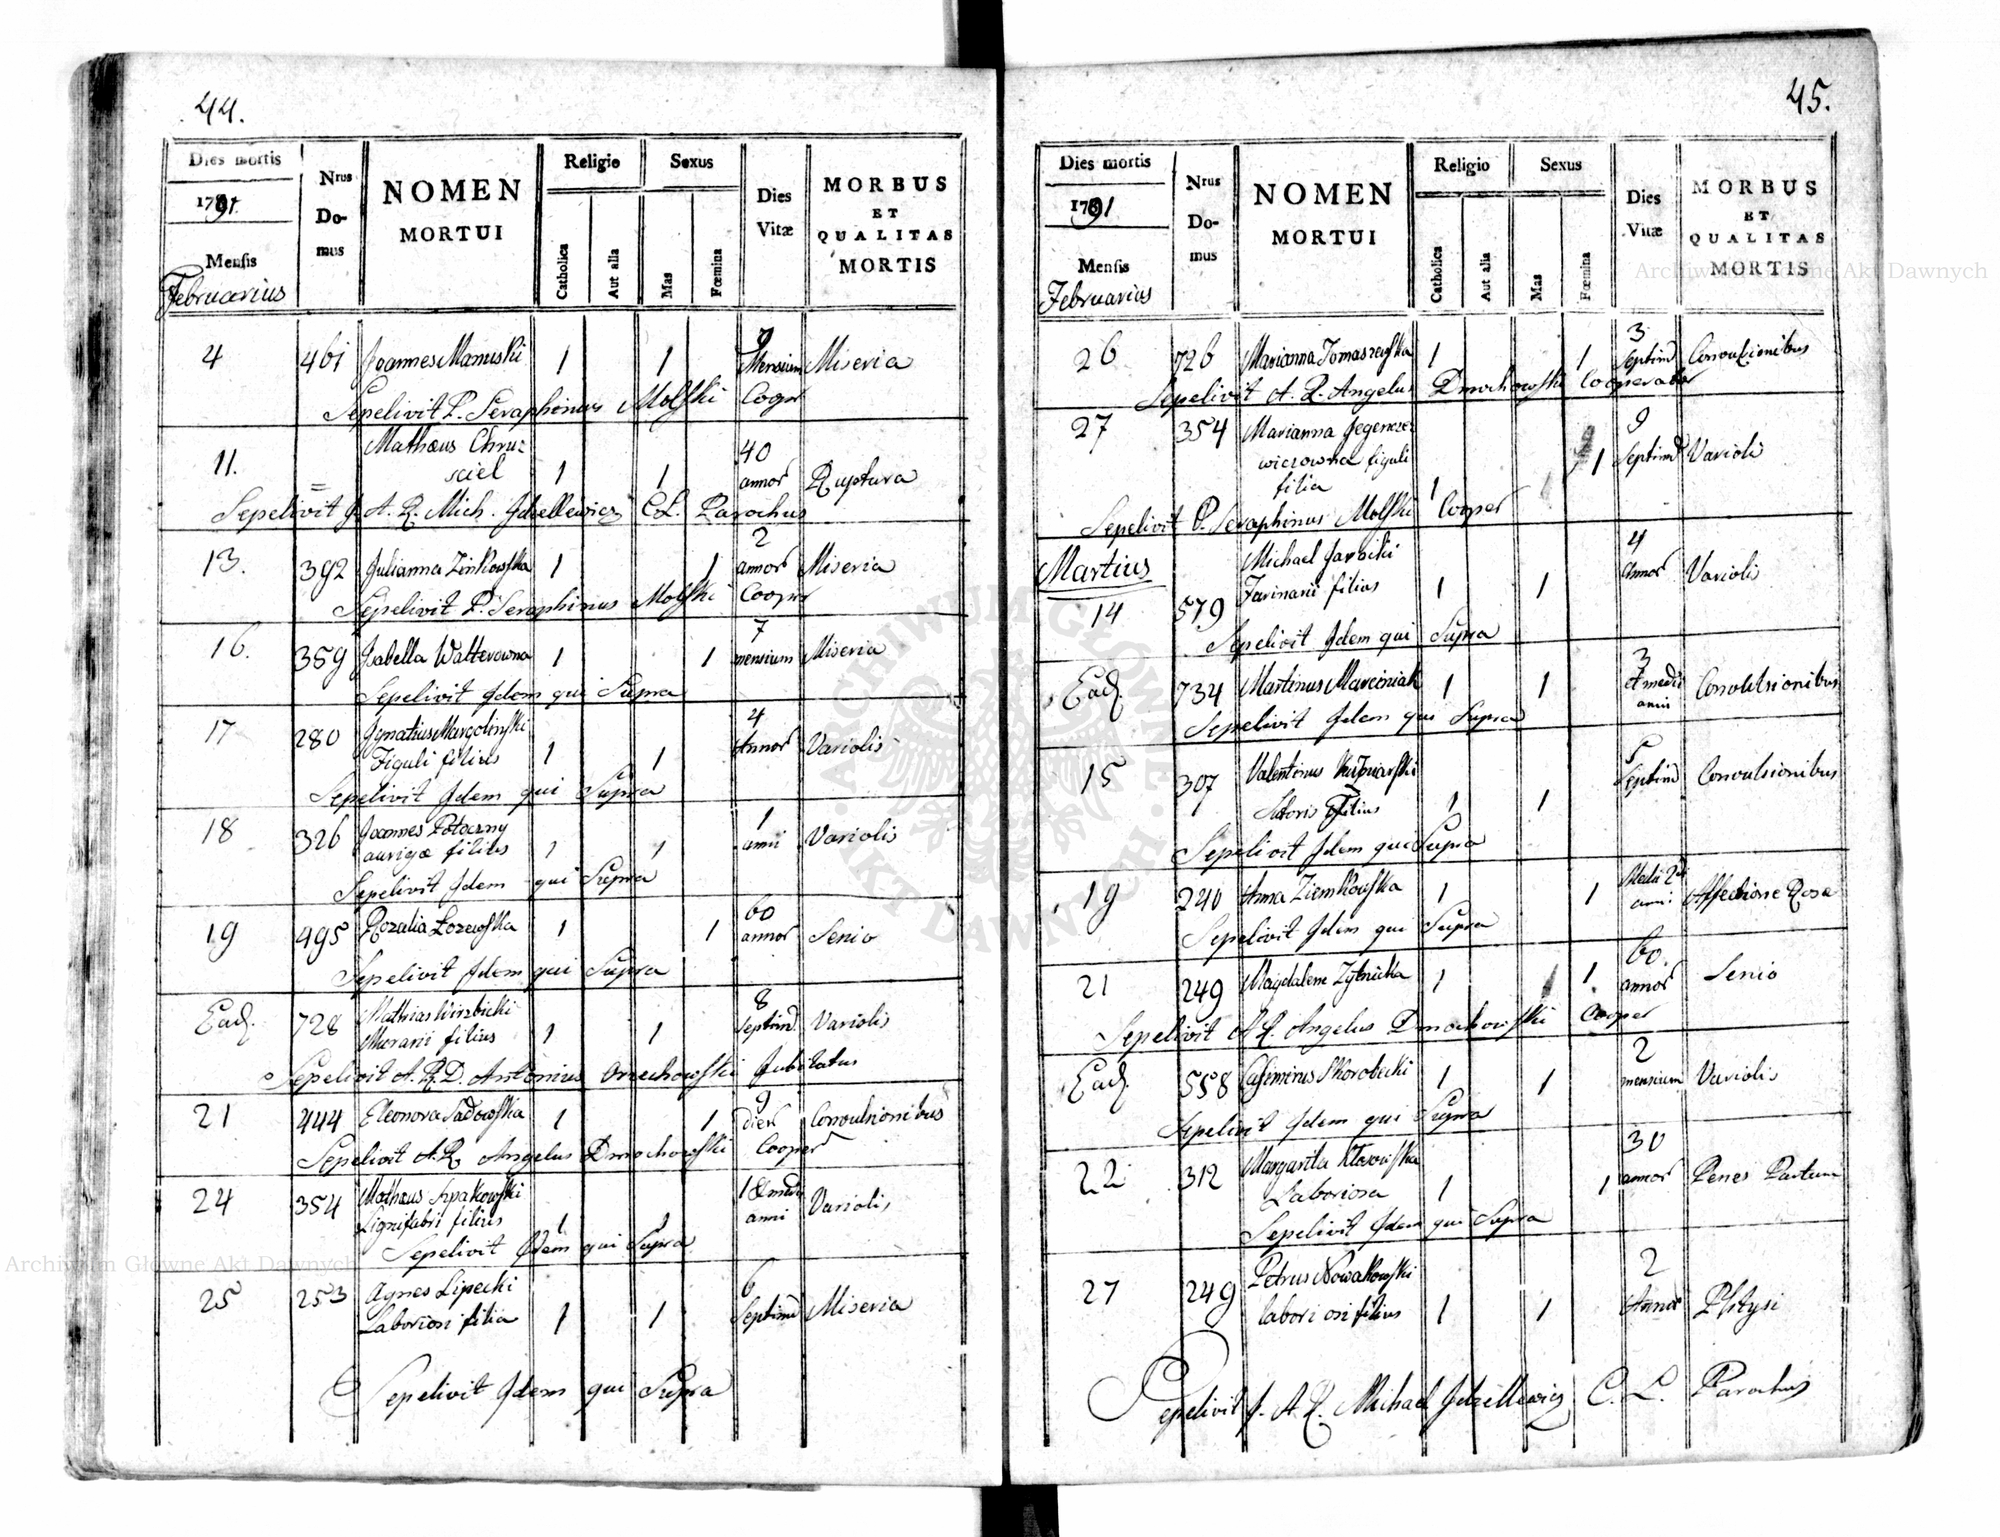 44.
Dies mortis
1791.
Mensis
Februarius
Nrus Do-mus
NOMEN
MORTUI
Religio
Catholica
Aut alia
Sexus
Mas
Fœmina
Dies
Vitæ
MORBUS
ET
QUALITAS
MORTIS
4 461 Joannes Manuski 1 1 9 Mensium Miseria
Sepelivit P. Seraphinus Molski Coopr
11. Mathæus Chru=
sciel 1 1 40 annor Ruptura
Sepelivit J. A. R. Mich. Jdzellewicz C. L. Parochus
13. 392 Julianna Zinkowska 1 1 2 annor Miseria
Sepelivit P. Seraphinus Molski Coopr
16. 359 Isabella Walterowna 1 1 7 mensium Miseria
Sepelivit Idem qui Supra
17 280 Ignatius Margolinski
Figuli filius 1 1 4 Annor Variolis
Sepelivit Idem qui Supra
18 326 Joannes Potoczny
aurigæ filius 1 1 1 anni Variolis
Sepelivit Idem qui Supra
19 495 Rozalia Łozewska 1 1 60 annor Senio
Sepelivit Idem qui Supra
Ead. 728 Mathias Wirzbicki
Murarii filius 1 1 8 Septim. Variolis
Sepelivit A. R. D. Antonius Orzechowski Jubilatus
21 444 Eleonora Sadowska 1 1 9 dier Convulsionibus
Sepelivit A. R. Angelus Dmochowski Cooper
24 354 Mathæus Szpakowski
Lignifabri filius 1 1 1 & medii anni Variolis
Sepelivit Idem qui Supra
25 253 Agnes Lipecki
Laboriosi filia 1 1 6 Septim Miseria
Sepelivit Idem qui Supra
45.
Dies mortis
1791
Mensis
Februarius
Nrus Do-mus
NOMEN
MORTUI
Religio
Catholica
Aut alia
Sexus
Mas
Fœmina
Dies
Vitæ
MORBUS
ET
QUALITAS
MORTIS
26 726 Marianna Tomaszewska 1 1 3 Septim Convulsionibus
Sepelivit A. R. Angelus Dmochowski Cooperator
27 354 Marianna
wiczowna figuli
filia 1 1 9 Septim Varioli
Sepelivit P. Seraphinus Molski Cooper
Martius
14 579 Michael Jarzicki
Farinarii filius 1 1 4 Annor Variolis
Sepelivit Idem qui Supra
Ead. 734 Martinus Marciniak 1 1 3 et medii anni Convulsionibus
Sepelivit Idem qui Supra
15 307 Valentinus
Sutoris Filius 1 1 5 Septim Convulsionibus
Sepelivit Idem qui Supra
19 240 Anna Ziemkowska 1 1 Medii 2di anni Affectione Rosa
Sepelivit Idem qui Supra
21 249 Magdalena Zytnicka 1 1. 60 annor Senio
Sepelivit A. R. Angelus Dmochowski Cooper
Ead. 558 Casimirus Skorobecki 1 1 2 mensium Variolis
Sepelivit Idem qui Supra
22 312 Margarita Kłosowska
Laboriosa 1 1 30 annor Penes Partum
Sepelivit Idem qui Supra
27 249 Petrus Nowakowski
laboriosi filius 1 1 2 Annor Phtysi
Sepelivit J. A. R. Michael Jdzellewicz C. L. Parochus
Archiwum Główne Akt Dawnych
Archiwum Główne Akt Dawnych
ARCHIWUM GŁÓWNE AKT DAWNYCH